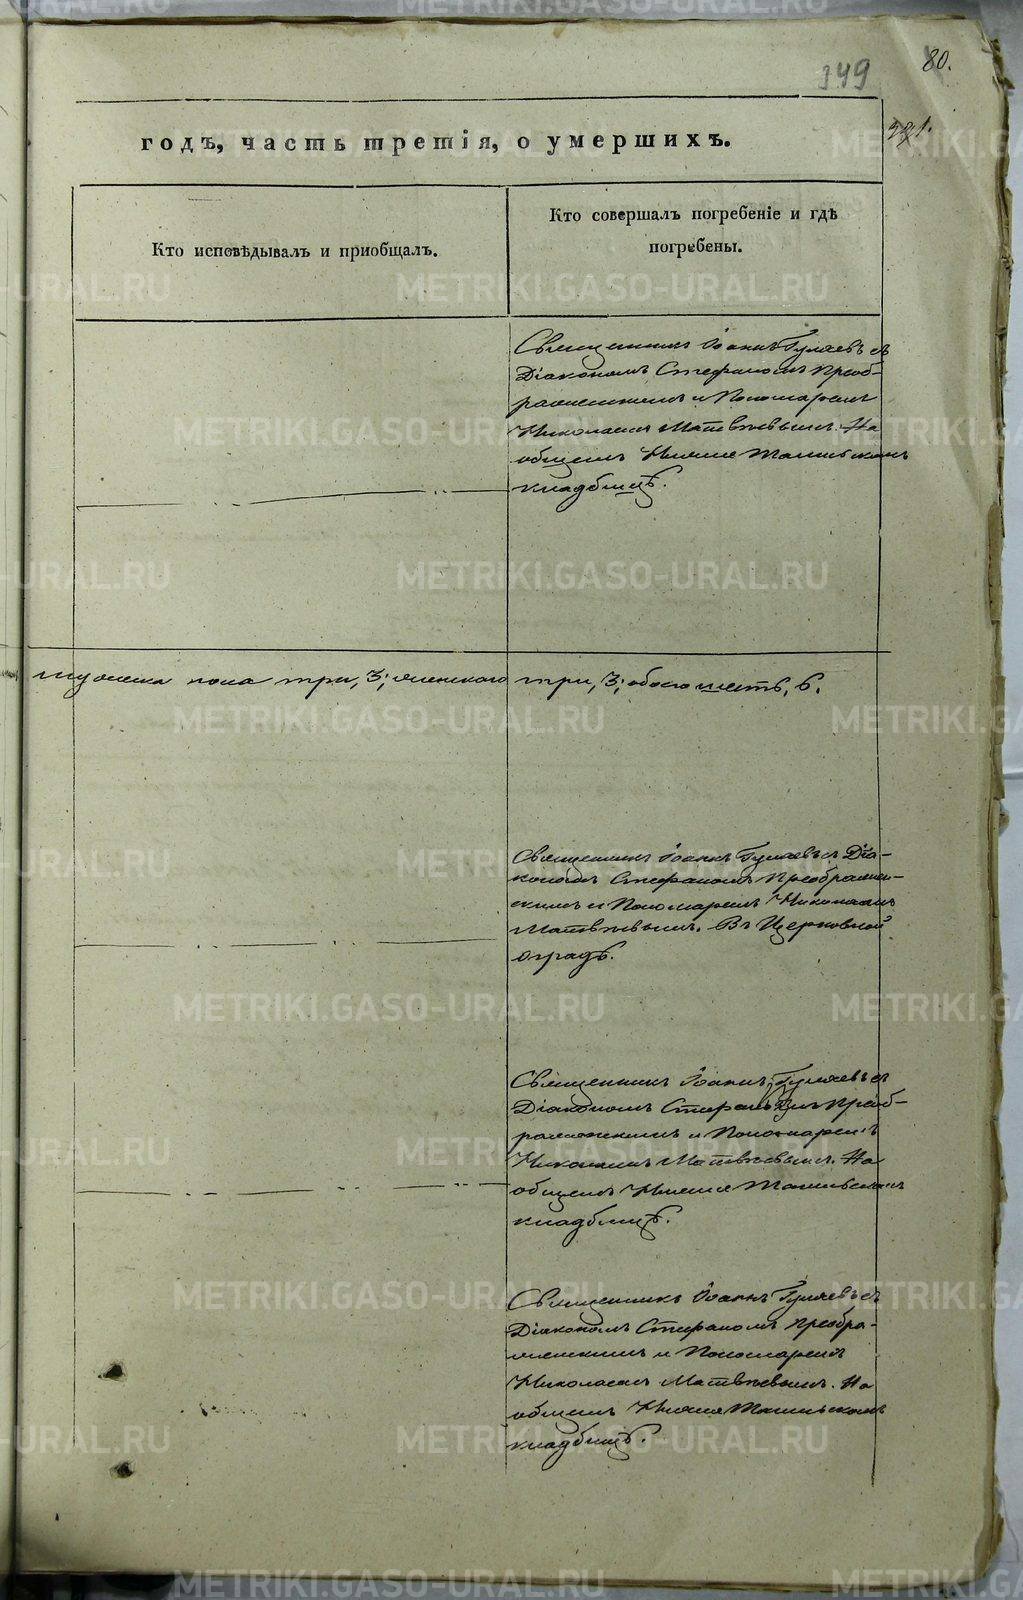 349
80.
годъ, часть третія, о умершихъ.
Кто исповѣдывалъ и пріобщалъ.
Кто совершалъ погребеніе и гдѣ
погребены.
Священникъ Іоаннъ Гуляевъ съ
Діакономъ Стефаномъ Преоб-
раженскимъ и Пономаремъ
Николаемъ Матвѣевымъ. На
общемъ Нижне Тагильскомъ
кладбищѣ.
мужеска пола три, 3; женскаго три, 3; обоего шесть, 6.
Священникъ Іоаннъ Гуляевъ съ Діа-
кономъ Стефаномъ Преображен-
скимъ и Пономаремъ Николаемъ
Матвѣевымъ. Въ Церковной
оградѣ.
Священникъ Іоаннъ Гуляевъ съ
Діакономъ Стефаномъ Преоб-
раженскимъ и Пономаремъ
Николаемъ Матвѣевымъ. На
общемъ Нижне Тагильскомъ
кладбищѣ.
Священникъ Іоаннъ Гуляевъ съ
Діакономъ Стефаномъ Преобра-
женскимъ и Пономаремъ
Николаемъ Матвѣевымъ. На
общемъ Нижне Тагильскомъ
кладбищѣ.
METRIKI.GASO-URAL.RU